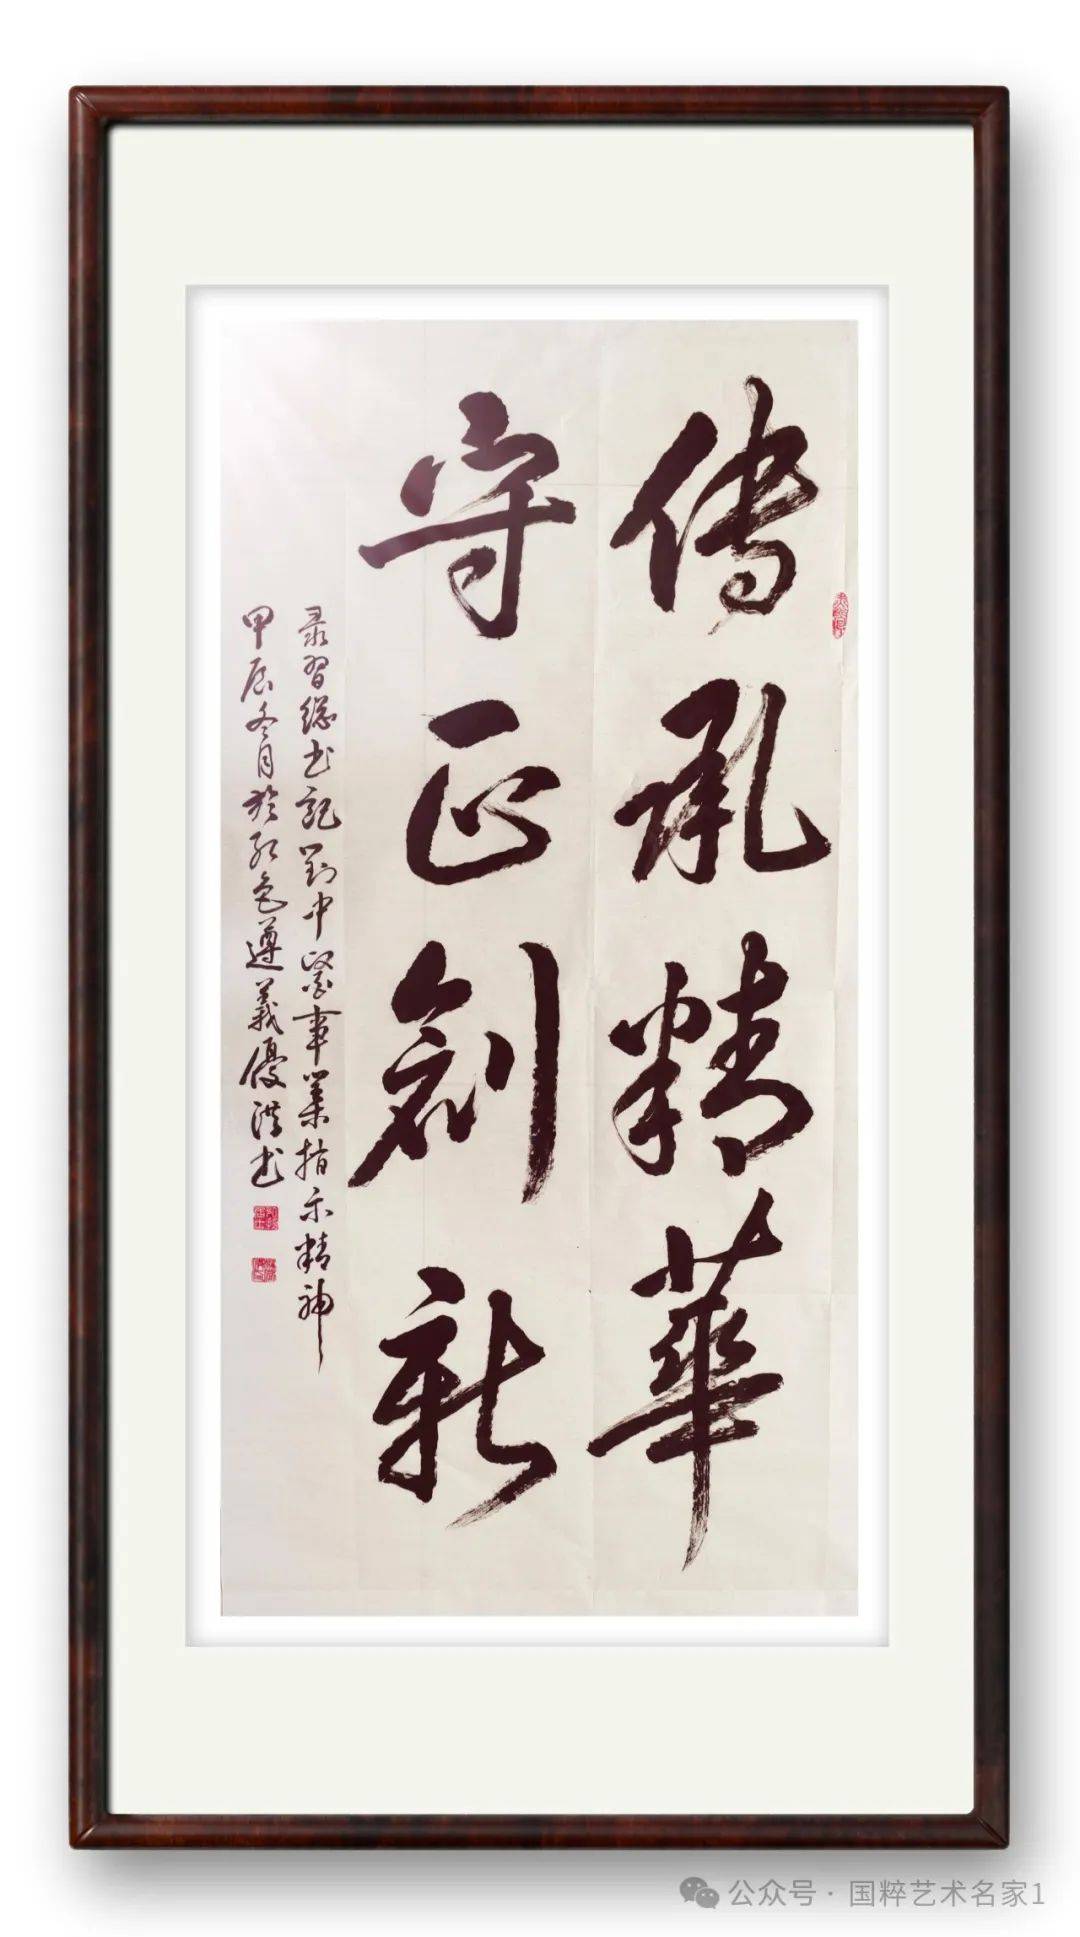 傳承精華
守正創新
录習總书記對中醫事業指示精神
甲辰冬月於红色遵義優洪书
公众号 · 国粹艺术名家1